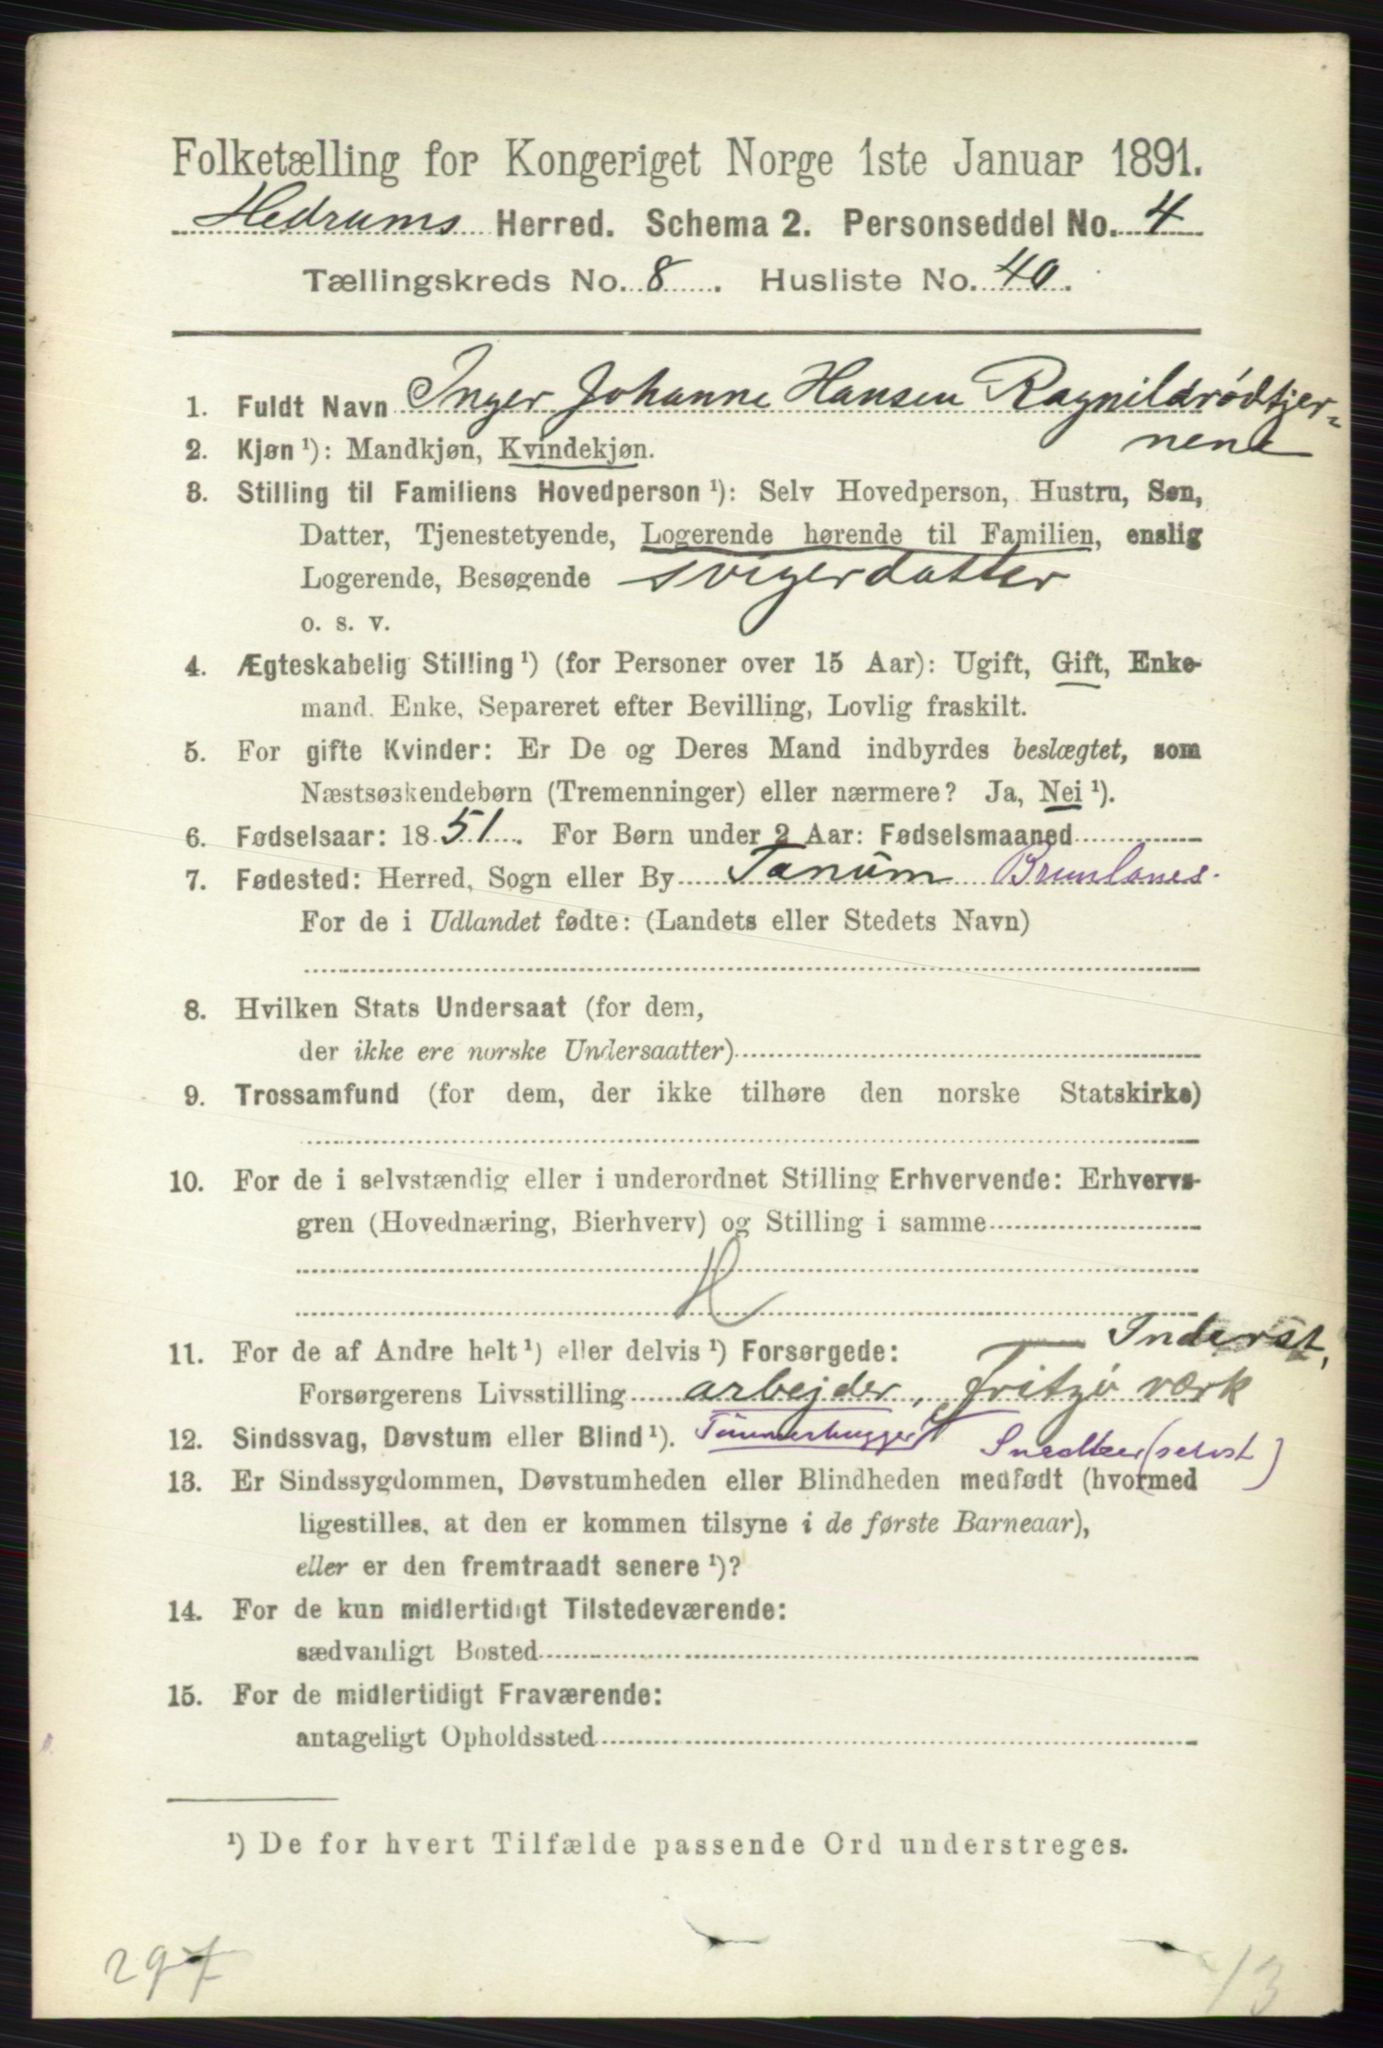 Folketælling for Kongeriget Norge 1ste Januar 1891.
Hedrums Herred. Schema 2. Personseddel No. 4
Tællingskreds No. 8. Husliste No. 40.
1. Fuldt Navn Inger Johanne Hansen Ragnildrödtjer-
nene
2. Kjøn ¹): Mandkjøn, Kvindekjøn.
3. Stilling til Familiens Hovedperson ¹): Selv Hovedperson, Hustru, Søn,
Datter, Tjenestetyende, Logerende hørende til Familien, enslig
Logerende, Besøgende svigerdatter
o. s. v.
4. Ægteskabelig Stilling ¹) (for Personer over 15 Aar): Ugift, Gift, Enke-
mand, Enke, Separeret efter Bevilling, Lovlig fraskilt.
5. For gifte Kvinder: Er De og Deres Mand indbyrdes beslægtet, som
Næstsøskendebørn (Tremenninger) eller nærmere? Ja, Nei ¹).
6. Fødselsaar: 1851. For Børn under 2 Aar: Fødselsmaaned
7. Fødested: Herred, Sogn eller By Tanum Brunlanes.
For de i Udlandet fødte: (Landets eller Stedets Navn)
8. Hvilken Stats Undersaat (for dem,
der ikke ere norske Undersaatter)
9. Trossamfund (for dem, der ikke tilhøre den norske Statskirke)
10. For de i selvstændig eller i underordnet Stilling Erhvervende: Erhvervs-
gren (Hovednæring, Bierhverv) og Stilling i samme
H
11. For de af Andre helt ¹) eller delvis ¹) Forsørgede: Inderst,
Forsørgerens Livsstilling arbejder, Fritzö værk
12. Sindssvag, Døvstum eller Blind ¹). Tømmerhugger Snedker (selvst)
13. Er Sindssygdommen, Døvstumheden eller Blindheden medfødt (hvormed
ligestilles, at den er kommen tilsyne i de første Barneaar),
eller er den fremtraadt senere ¹)?
14. For de kun midlertidigt Tilstedeværende:
sædvanligt Bosted
15. For de midlertidigt Fraværende:
antageligt Opholdssted
¹) De for hvert Tilfælde passende Ord understreges.
297 13